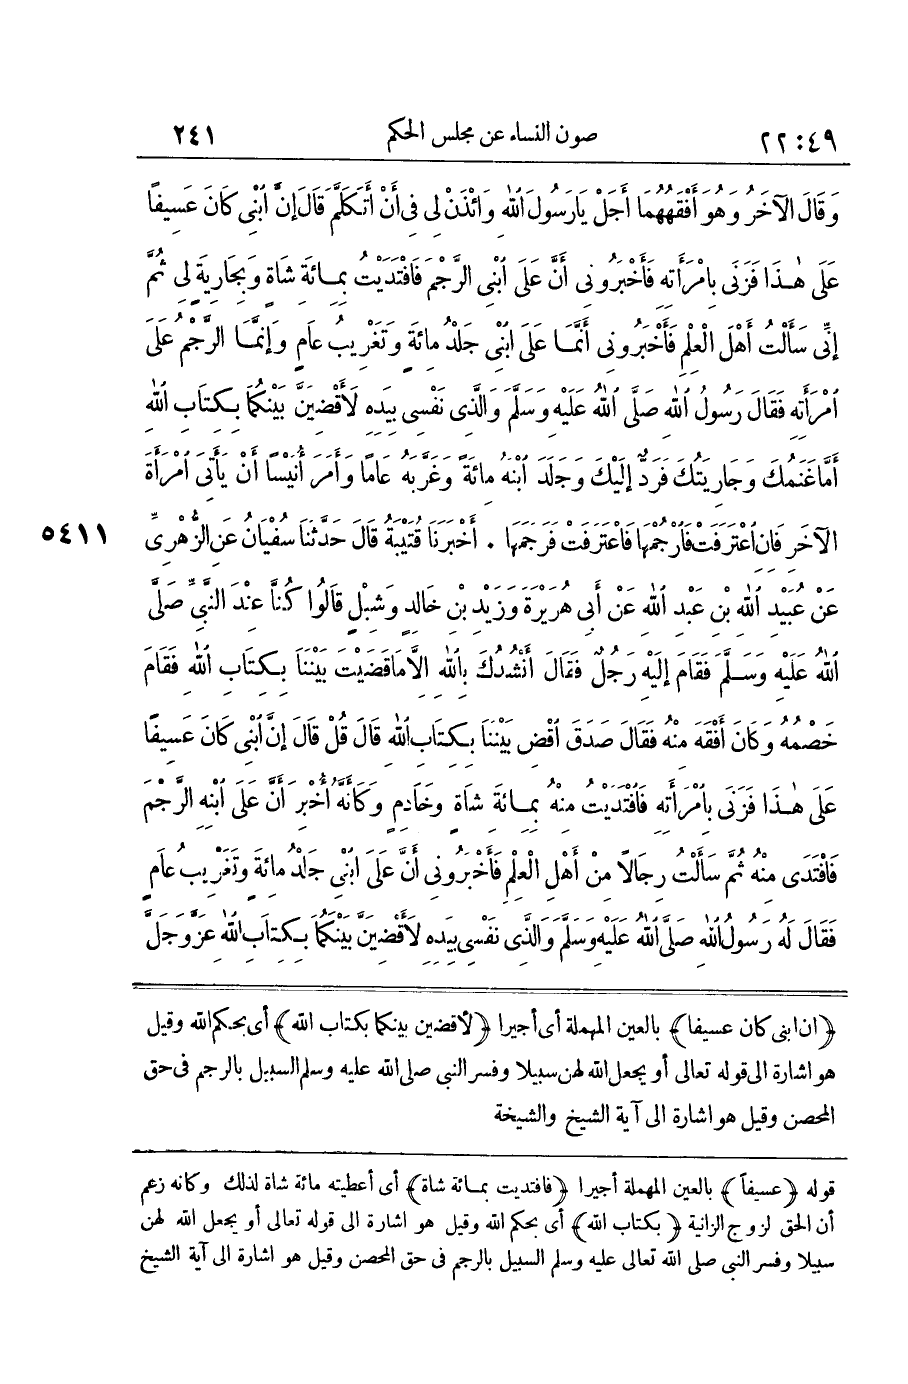 ٢٢:٤٩ صون النساء عن مجلس الحكم ٢٤١
وَقَالَ الْآخَرُ وَهُوَ أَفْقَهُهُمَا أَجَلْ يَارَسُولَ ٱللّٰهِ وَائْذَنْ لِى فِى أَنْ أَتَكَلَّمَ قَالَ إِنَّ ٱبْنِى كَانَ عَسِيفًا
عَلَى هٰـذَا فَزَنَى بِامْرَأَتِهِ فَأَخْبَرُونِى أَنَّ عَلَى ٱبْنِى الرَّجْمَ فَافْتَدَيْتُ بِمِـائَةِ شَاةٍ وَبِجَارِيَةٍ لِى ثُمَّ
إِنِّى سَأَلْتُ أَهْلَ الْعِلْمِ فَأَخْبَرُونِى أَنَّمَـا عَلَى ابْنِى جَلْدُ مِائَةٍ وَتَغْرِيبُ عَامٍ وَإِنَّمَـا الرَّجْمُ عَلَى
ٱمْرَأَتِهِ فَقَالَ رَسُولُ ٱللّٰهِ صَلَّى ٱللّٰهُ عَلَيْهِ وَسَلَّمَ وَالَّذِى نَفْسِى بِيَدِهِ لَأَقْضِيَنَّ بَيْنَكُمَا بِـكِتَابِ ٱللّٰهِ
أَمَّا غَنَمُكَ وَجَارِيَتُكَ فَرَدٌّ إِلَيْكَ وَجَلَدَ ٱبْنَهُ مِائَةً وَغَرَّبَهُ عَامًا وَأَمَرَ أُنَيْسًا أَنْ يَأْتِىَ ٱمْرَأَةَ
الْآخَرِ فَإِنِ ٱعْتَرَفَتْ فَٱرْجُمْهَا فَاعْتَرَفَتْ فَرَجَمَهَا . أَخْبَرَنَا قُتَيْبَةُ قَالَ حَدَّثَنَا سُفْيَانُ عَنِ الزُّهْرِىِّ ٥٤١١
عَنْ عُبَيْدِ ٱللّٰهِ بْنِ عَبْدِ ٱللّٰهِ عَنْ أَبِى هُرَيْرَةَ وَزَيْدِ بْنِ خَالِدٍ وَشِبْلٍ قَالُوا كُنَّا عِنْدَ النَّبِىِّ صَلَّى
ٱللّٰهُ عَلَيْهِ وَسَـلَّمَ فَقَامَ إِلَيْهِ رَجُلٌ فَقَالَ أَنْشُدُكَ بِٱللّٰهِ إِلَّا مَاقَضَيْتَ بَيْنَنَا بِـكِتَابِ ٱللّٰهِ فَقَامَ
خَصْمُهُ وَكَانَ أَفْقَهَ مِنْهُ فَقَالَ صَدَقَ ٱقْضِ بَيْنَنَا بِـكِتَابِ ٱللّٰهِ قَالَ قُلْ قَالَ إِنَّ ٱبْنِى كَانَ عَسِيفًا
عَلَى هٰـذَا فَزَنَى بِٱمْرَأَتِهِ فَٱفْتَدَيْتُ مِنْهُ بِمِـائَةِ شَاةٍ وَخَادِمٍ وَكَأَنَّهُ أُخْبِرَ أَنَّ عَلَى ٱبْنِهِ الرَّجْمَ
فَافْتَدَى مِنْهُ ثُمَّ سَأَلْتُ رِجَالًا مِنْ أَهْلِ الْعِلْمِ فَأَخْبَرُونِى أَنَّ عَلَى ابْنِى جَلْدَ مِائَةٍ وَتَغْرِيبُ عَامٍ
فَقَالَ لَهُ رَسُولُ ٱللّٰهِ صَلَّى ٱللّٰهُ عَلَيْهِ وَسَلَّمَ وَالَّذِى نَفْسِى بِيَدِهِ لَأَقْضِيَنَّ بَيْنَكُمَا بِـكِتَابِ ٱللّٰهِ عَزَّ وَجَلَّ
﴿ان ابنى كان عسيفا﴾ بالعين المهملة أى أجيرا ﴿لأقضين بينكما بكتاب الله﴾ أى بحكم الله وقيل
هو اشارة الى قوله تعالى أو يجعل الله لهن سبيلا وفسر النبى صلى الله عليه وسلم السبيل بالرجم فى حق
المحصن وقيل هو اشارة الى آية الشيخ والشيخة
قوله ﴿عسيفاً﴾ بالعين المهملة أجيرا ﴿فافتديت بمـائة شاة﴾ أى أعطيته مائة شاة لذلك وكانه زعم
أن الحق لزوج الزانية ﴿بكتاب الله﴾ أى بحكم الله وقيل هو اشارة الى قوله تعالى أو يجعل الله لهن
سبيلا وفسر النبى صلى الله تعالى عليه وسلم السبيل بالرجم فى حق المحصن وقيل هو اشارة الى آية الشيخ